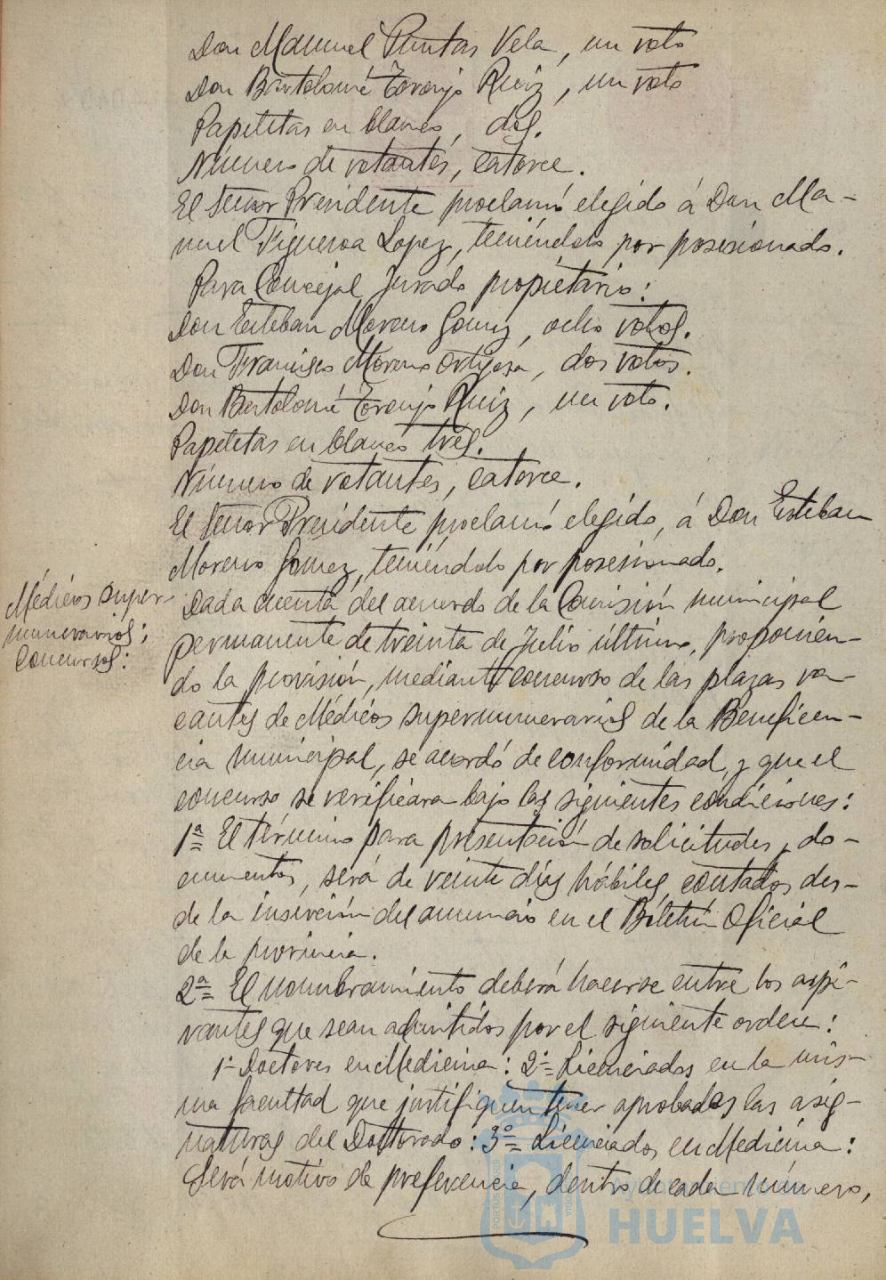 Don Manuel Puntas Vela, un voto
Don Bartolomé Toronjo Ruiz, un voto
Papeletas en blanco, dos.
Número de votantes, catorce.
El Señor Presidente proclamó elegido á Don Ma-
nuel Figueroa Lopez, teniéndolo por posesionado.
Para Concejal Jurado propietario:
Don Esteban Moreno Gomez, ocho votos.
Don Francisco Moreno Ortigosa, dos votos.
Don Bartolomé Toronjo Ruiz, un voto.
Papeletas en blanco tres.
Número de votantes, catorce.
El Señor Presidente proclamó elegido, á Don Esteban
Moreno Gomez, teniéndolo por posesionado.
Médicos super-
numerarios;
Concurso:
Dada cuenta del acuerdo de la Comisión municipal
permanente de treinta de Julio último, proponien-
do la provisión, mediante concurso de las plazas va-
cantes de Médicos supernumerarios de la Beneficen-
cia municipal, se acordó de conformidad, y que el
concurso se verificara bajo las siguientes condiciones:
1ª El término para presentación de solicitudes y do-
cumentos, será de veinte días hábiles, contados des-
de la inserción del anuncio en el Boletín Oficial
de la provincia.
2ª El nombramiento deberá hacerse entre los aspi-
rantes que sean admitidos por el siguiente orden:
1º Doctores en Medicina: 2º Licenciados en la mis-
ma facultad que justifiquen tener aprobadas las asig-
naturas del Doctorado: 3º Licenciados en Medicina:
Será motivo de preferencia, dentro de cada número,
Ayuntamiento de
HUELVA